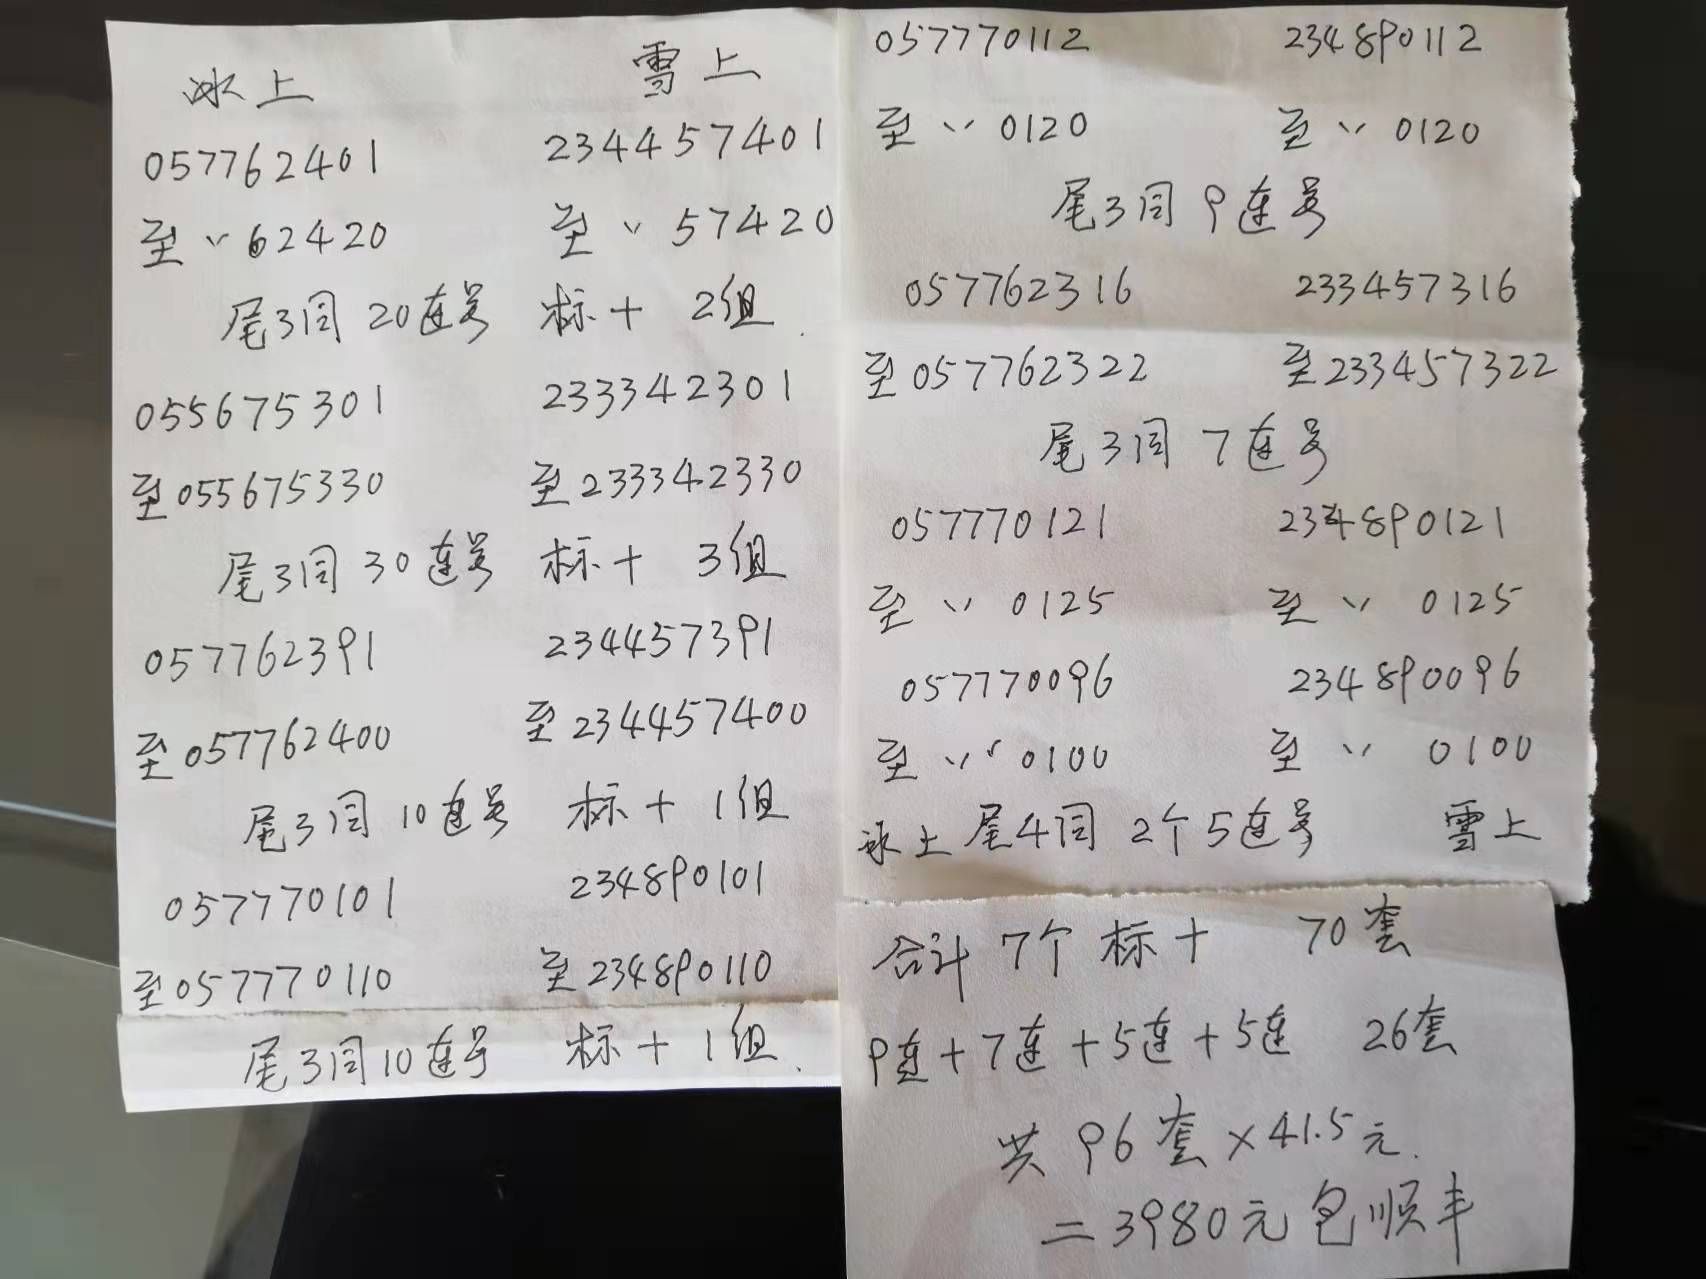 冰上 雪上
057762401 234457401
至〃62420 至〃57420
尾3同20连号 标十 2组
055675301 233342301
至055675330 至233342330
尾3同30连号 标十 3组
057762391 234457391
至057762400 至234457400
尾3同10连号 标十 1组
057770101 234890101
至057770110 至234890110
尾3同10连号 标十 1组.
057770112 234890112
至〃0120 至〃0120
尾3同9连号
057762316 233457316
至057762322 至233457322
尾3同7连号
057770121 234890121
至〃0125 至〃0125
057770096 234890096
至〃0100 至〃0100
冰上尾4同2个5连号 雪上
合计7个标十 70套
9连+7连+5连+5连 26套
共96套×41.5元.
=3980元包顺丰